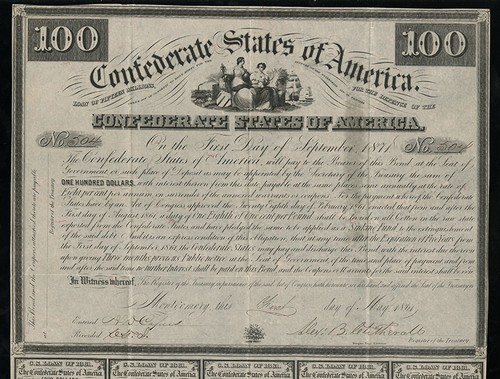 100
Confederate States of America.
100
LOAN OF FIFTEEN MILLIONS,
FOR THE DEFENCE OF THE
CONFEDERATE STATES OF AMERICA.
No. 504
On the First Day of September 1871
No. 504
The Confederate States of America, will pay to the Bearer of this Bond, at the Seat of
Government or such place of Deposit as may be appointed by the Secretary of the Treasury the sum of
ONE HUNDRED DOLLARS, with interest thereon from this date payable at the same place semi annually at the rate of
Eight per cent per annum on surrender of the annexed warrants or coupons. For the payment whereof the Confederate
States have by an Act of Congress approved the Twenty Eighth day of February 1861, enacted, that from and after the
First day of August 1861, a duty of One Eighth of One cent per Pound shall be levied on all Cotton in the raw state
exported from the Confederate States and have pledged the same to be applied as a Sinking Fund to the extinguishment
of the said debt. And it is an express condition of this Obligation that at any time after the Expiration of Five years from
the First day of September, 1861, the Confederate States may pay and discharge this Bond with the interest to the time
upon giving Three months previous Public notice at the Seat of Government of the time and place of payment and from
and after the said time no further Interest shall be paid on this Bond, and the Coupons or Warrants for the said interest shall be void.
In Witness whereof, The Register of the Treasury in pursuance of the said Act of Congress hath hereunto set his hand, and affixed the Seal of the Treasury at
Montgomery this First day of May 1861
Entered
Recorded
Register of the Treasury
C.S. LOAN OF 1861.
The Confederate States of America
C.S. LOAN OF 1861.
The Confederate States of America
C.S. LOAN OF 1861.
The Confederate States of America
C.S. LOAN OF 1861.
The Confederate States of America
C.S. LOAN OF 1861.
The Confederate States of America